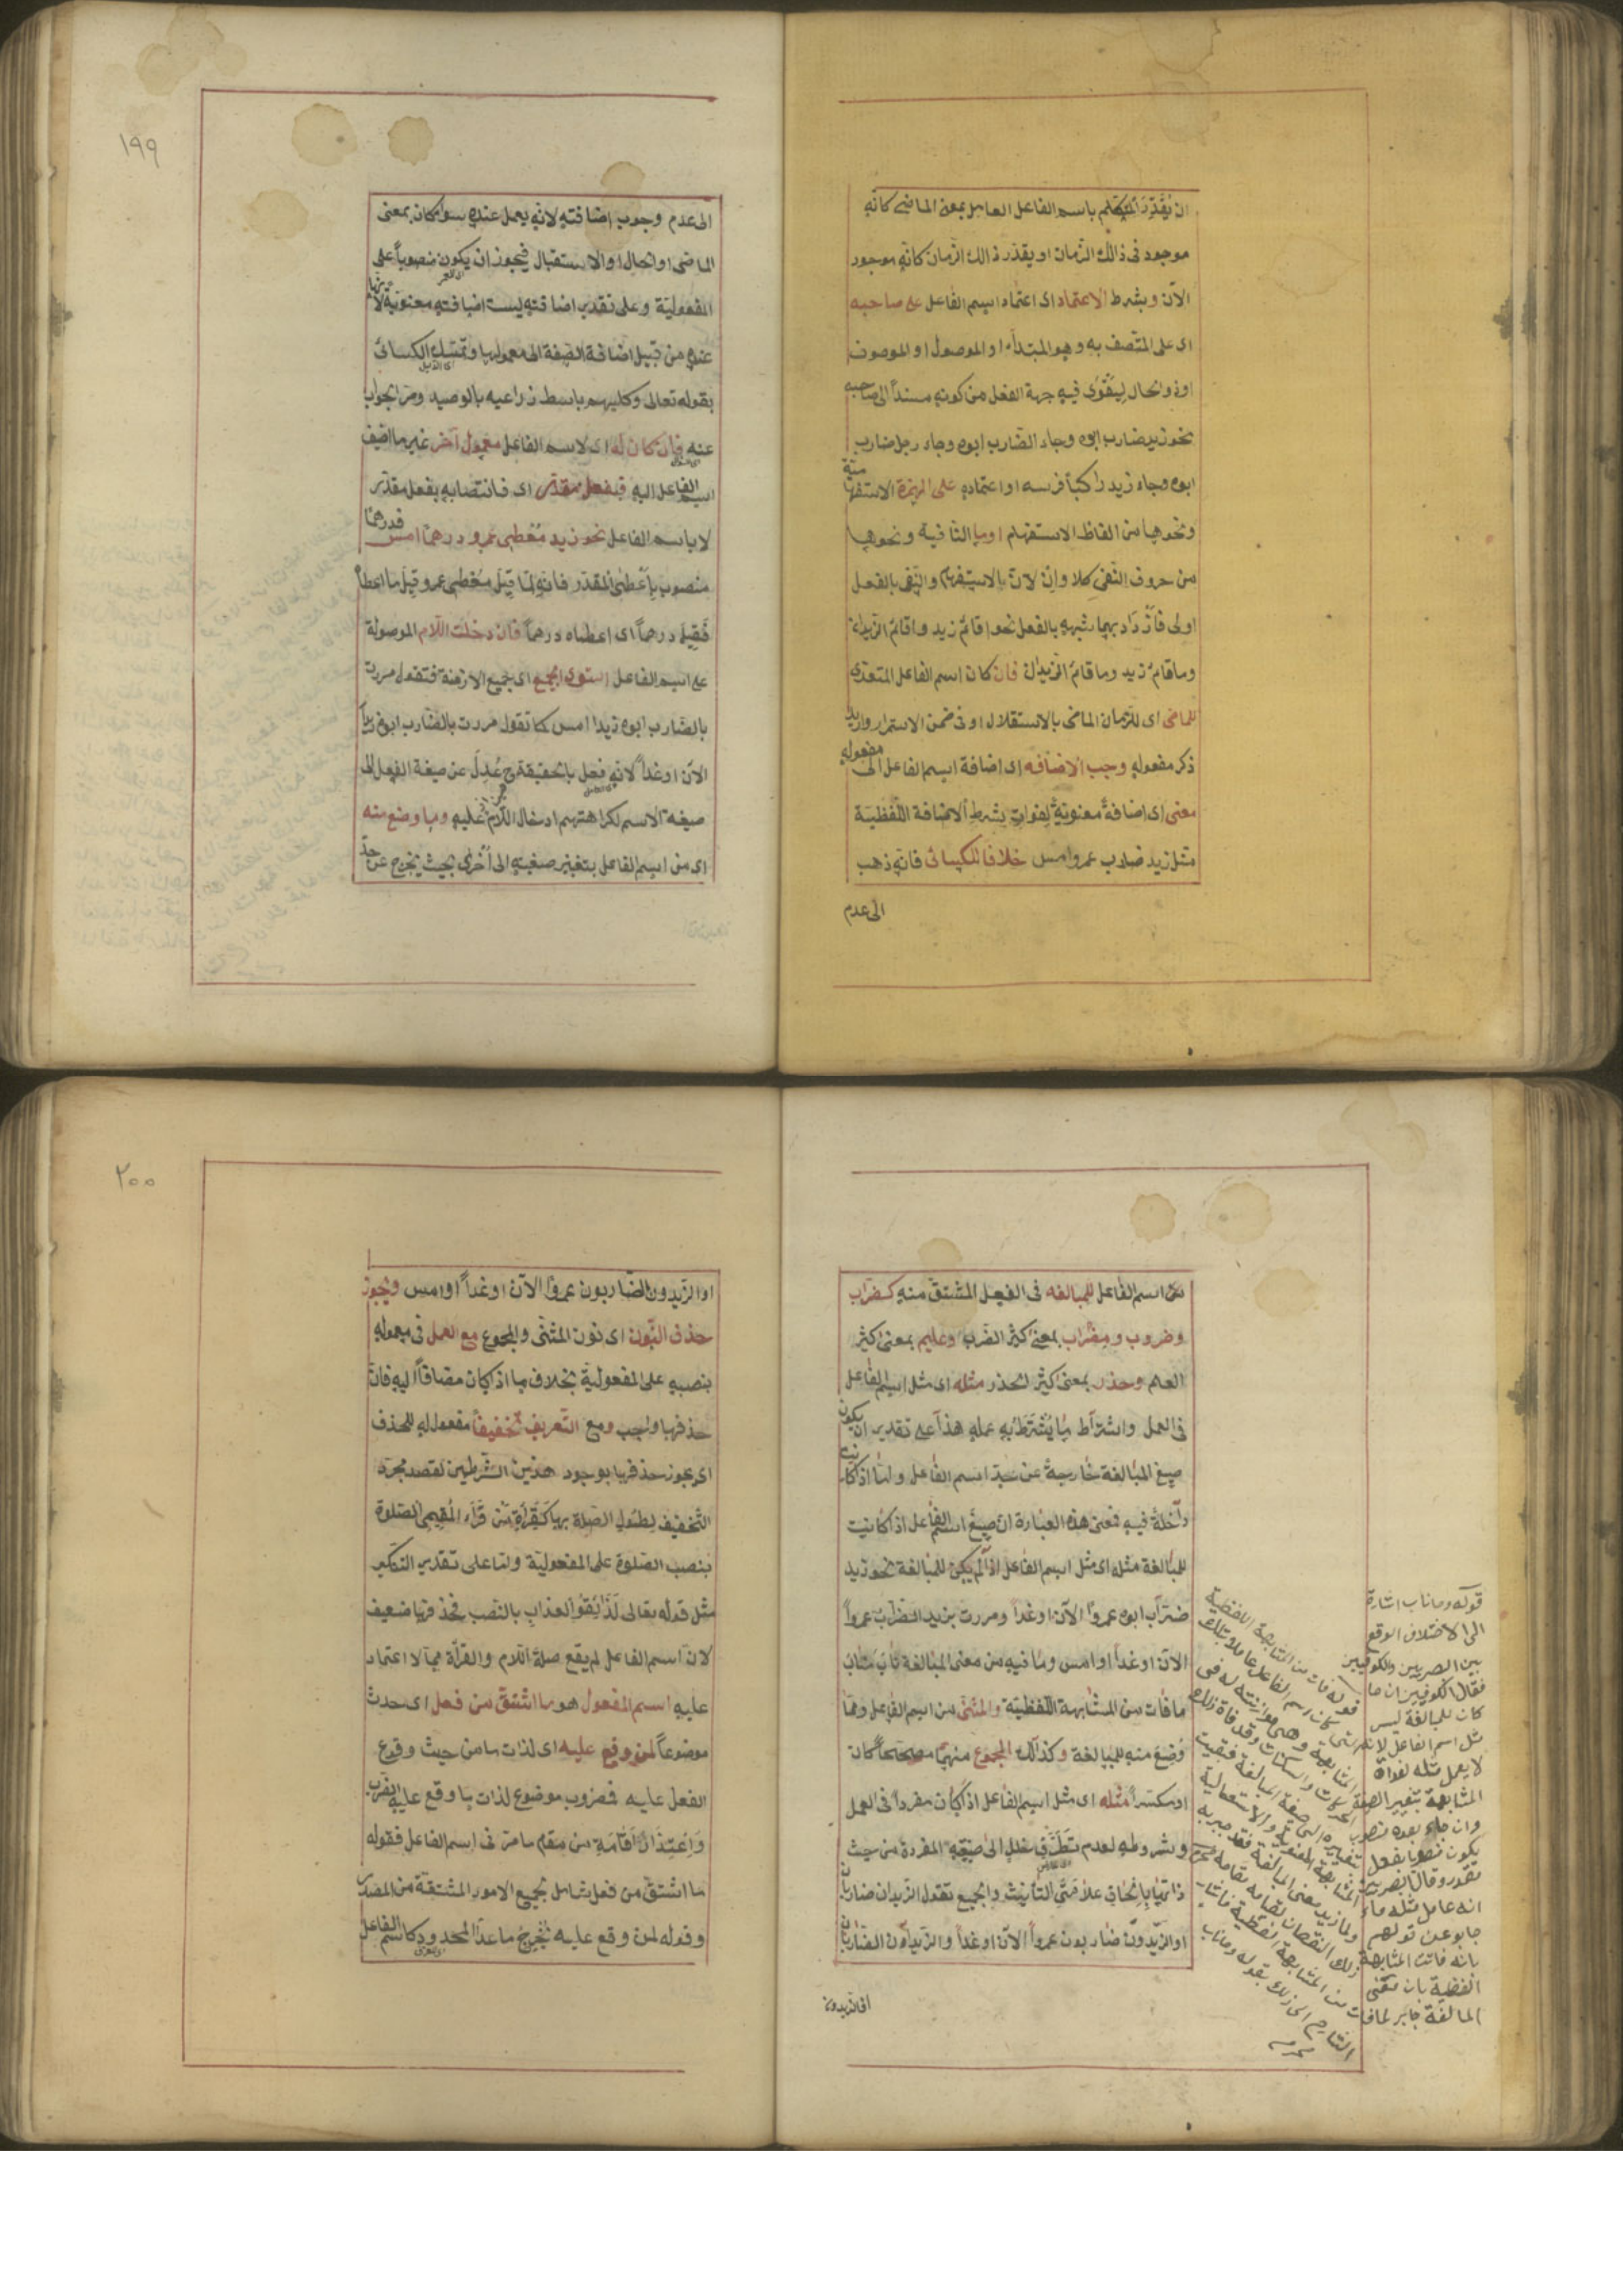 ان يُقَدِّرَ المتكلم باسم الفاعل العامل بمعنى الماضى كانه
موجود فى ذالك الزمان او يقدّر ذالك الزمان كانه موجود
الآن وبشرط الاعتماد اى اعتماد اسم الفاعل على صاحبه
اى على المتصف به وهو المبتداء او الموصول او الموصوف
او ذو الحال ليتقوّى فيه جهة الفعل من كونه مسنداً الى صاحبه
نحو زيد ضارب ابوه وجاء الضارب ابوه وجاء رجل ضارب
ابوه وجاء زيد راكباً فرسه او اعتماده على الهمزة الاستفهامية
ونحوها من الفاظ الاستفهام او ما النافية ونحوها
من حروف النفى كلا وان لان الاستفهام والنفى بالفعل
اولى فازداد بهما شبهه بالفعل نحو اقائم زيد واقائم الزيدان
وما قائم زيد وما قائم الزيدان فان كان اسم الفاعل المتعدى
للماضى اى للزمان الماضى بالاستقلال او فى ضمن الاستمرار واريد
ذكر مفعوله وجب الاضافه اى اضافة اسم الفاعل الى مفعوله
معنى اى اضافةً معنويةً لفوات شرط الاضافة اللفظية
مثل زيد ضارب عمرو امس خلافا للكسائى فانه ذهب
الى عدم
١٩٩
الى عدم وجوب اضافته لانه يعمل عنده سواء كان بمعنى
الماضى او الحال او الاستقبال فيجوز ان يكون منصوباً على
المفعولية وعلى تقدير اضافته ليست اضافته معنوية لانها
عنده من قبيل اضافة الصفة الى معمولها وتمسك الكسائى
بقوله تعالى وكلبهم باسط ذراعيه بالوصيد ومرّ الجواب
عنه فان كان له اى لاسم الفاعل معمول آخر غير ما اضيف
اسم الفاعل اليه فبفعل مقدّر اى فانتصابه بفعل مقدّر
لا باسم الفاعل نحو زيد مُعْطِى عمرو درهماً امس فدرهما
منصوب باَعْطٰى المقدّر فانه لمّا قيل مُعْطِى عمرو قيل ما اعطا
فقيل درهماً اى اعطاه درهماً فان دخلت اللام الموصولة
على اسم الفاعل استوى الجميع اى جميع الازمنة فتقول مررت
بالضارب ابوه زيدا امس كما تقول مررت بالضارب ابوه زيداً
الآن او غداً لانه فعل بالحقيقة ح عُدِلَ عن صيغة الفعل الى
صيغة الاسم لكراهتهم ادخال اللام عليه وما وضع منه
اى من اسم الفاعل بتغيير صيغته الى اُخْرٰى بحيث يخرج عن حدّ
عن اسم الفاعل للمبالغه فى الفعل المشتق منه كضرّاب
وضروب ومضراب بمعنى كثير الضرب وعليم بمعنى كثير
العلم وحذر بمعنى كثير الحذر مثله اى مثل اسم الفاعل
فى العمل واشتراط ما يُشْتَرَطُ به عمله هذا على تقدير ان يكون
صيغ المبالغة خارجةً عن حدّ اسم الفاعل واما اذا كانت
داخلةً فيه فمعنى هذه العبارة ان صيغ اسم الفاعل اذا كانت
للمبالغة مثله اى مثل اسم الفاعل اذا لم يكن للمبالغة نحو زيد
ضرّاب ابوه عمرواً الآن او غداً ومررت بزيد الضرّاب عمرواً
الآن او غداً او امس وما فيه من معنى المبالغة ناب مناب
ما فات من المشابهة اللفظية والمثنى من اسم الفاعل ومما
وُضِعَ منه للمبالغة وكذالك المجموع منهما مصححاً كان
او مكسّراً مثله اى مثل اسم الفاعل اذا كان مفرداً فى العمل
وشروطه لعدم تطرّق خلل الى صيغة المفردة من حيث
ذاتها بالحاق علامتى التأنيث والجمع تقول الزيدان ضاربان
او الزيدون ضاربون عمرواً الآن او غداً والزيدون الضاربان
او الزيدون
قوله وما ناب اشارة
الى الاختلاف الوقع
بين البصريين والكوفيين
فقال الكوفيين ان ما
كان للمبالغة ليس
مثل اسم الفاعل لانه
لا يعمل مثله لفوات
المشابهة بتغير الصيغة
وان جاء بعده منصوب
يكون منصوبا بفعل
مقدر وقال البصريين
انه عامل مثله
جابو عن قولهم
بانه فاتت المشابهة
اللفظية بان معنى
المبالغة جابر لما فات
٢٠٠
او الزيدون الضاربون عمروا الآن او غداً او امس ويجوز
حذف النون اى نون المثنى والمجموع مع العمل فى معموله
بنصبه على المفعولية بخلاف ما اذا كان مضافاً اليه فان
حذفها واجب ومع التعريف تخفيفاً مفعول له للحذف
اى يجوز حذفها بوجود هذين الشرطين لقصد مجرّد
التخفيف لطول الصلة بها كقراءة من قرأ المقيمى الصلوة
بنصب الصلوة على المفعولية واما على تقدير التنكير
مثل قوله تعالى لذائقوا العذاب بالنصب فحذفها ضعيف
لان اسم الفاعل لم يقع صلة اللام والقرأة مما لا اعتماد
عليه اسم المفعول هو ما اشتق من فعل اى حدث
موضوعاً لمن وقع عليه اى لذات ما من حيث وقوع
الفعل عليه فمضروب موضوع لذات ما وقع عليه الضرب
واعتذار اقامة من مقام ما مرّ فى اسم الفاعل فقوله
ما اشتق من فعل شامل لجميع الامور المشتقة من المصدر
وقوله لمن وقع عليه يُخْرِجُ ما عدا المحدود كاسم الفاعل